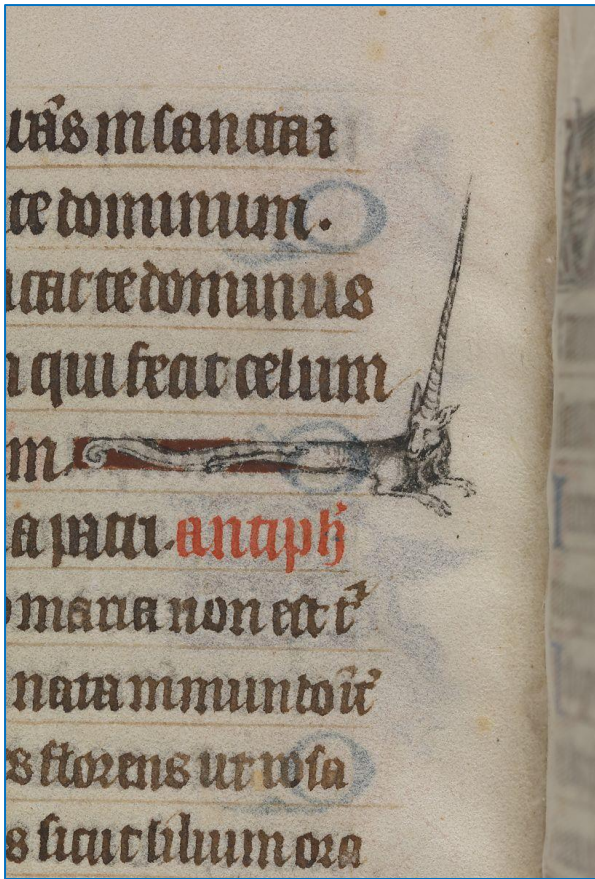 uās in sancta ⁊
te dominium.
icat te dominus
n qui fecit celum
m
a patri. antiph̄
o maria non est t᷒
nata in mundo īt᷒
s florens ut rosa
s sicut lilium ora